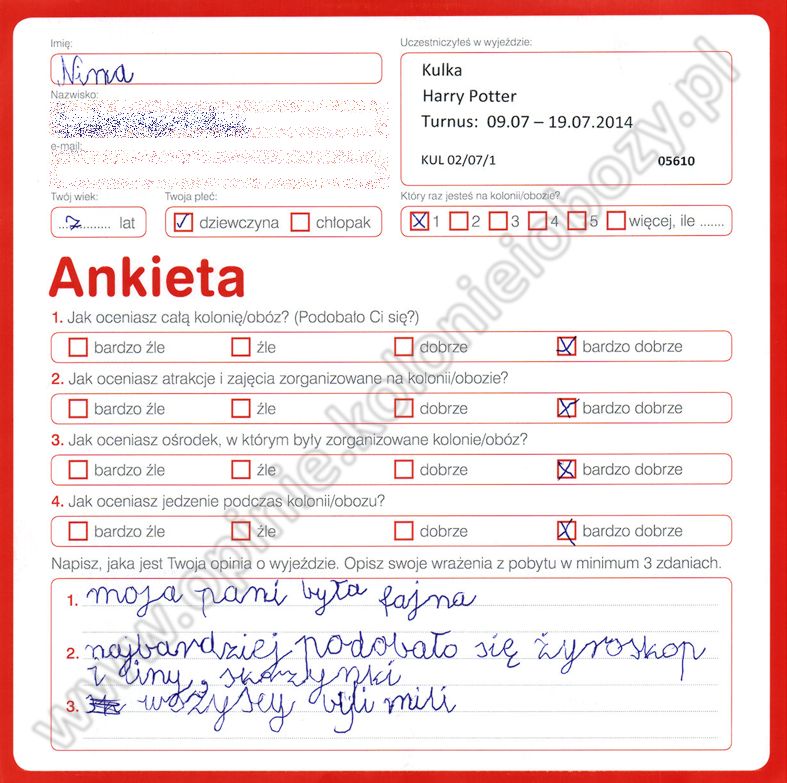 Imię:
Nina
Nazwisko:
e-mail:
Twój wiek:
...7......... lat
Twoja płeć:
dziewczyna chłopak
Uczestniczyłeś w wyjeździe:
Kulka
Harry Potter
Turnus: 09.07 – 19.07.2014
KUL 02/07/1 05610
Który raz jesteś na kolonii/obozie?
1 2 3 4 5 więcej, ile .......
Ankieta
1. Jak oceniasz całą kolonię/obóz? (Podobało Ci się?)
bardzo źle źle dobrze bardzo dobrze
2. Jak oceniasz atrakcje i zajęcia zorganizowane na kolonii/obozie?
bardzo źle źle dobrze bardzo dobrze
3. Jak oceniasz ośrodek, w którym były zorganizowane kolonie/obóz?
bardzo źle źle dobrze bardzo dobrze
4. Jak oceniasz jedzenie podczas kolonii/obozu?
bardzo źle źle dobrze bardzo dobrze
Napisz, jaka jest Twoja opinia o wyjeździe. Opisz swoje wrażenia z pobytu w minimum 3 zdaniach.
1. moja pani była fajna
2. najbardziej podobało się żyroskop
i liny, skarzynki
3. wszyscy byli mili
www.opinie.kolonieiobozy.pl